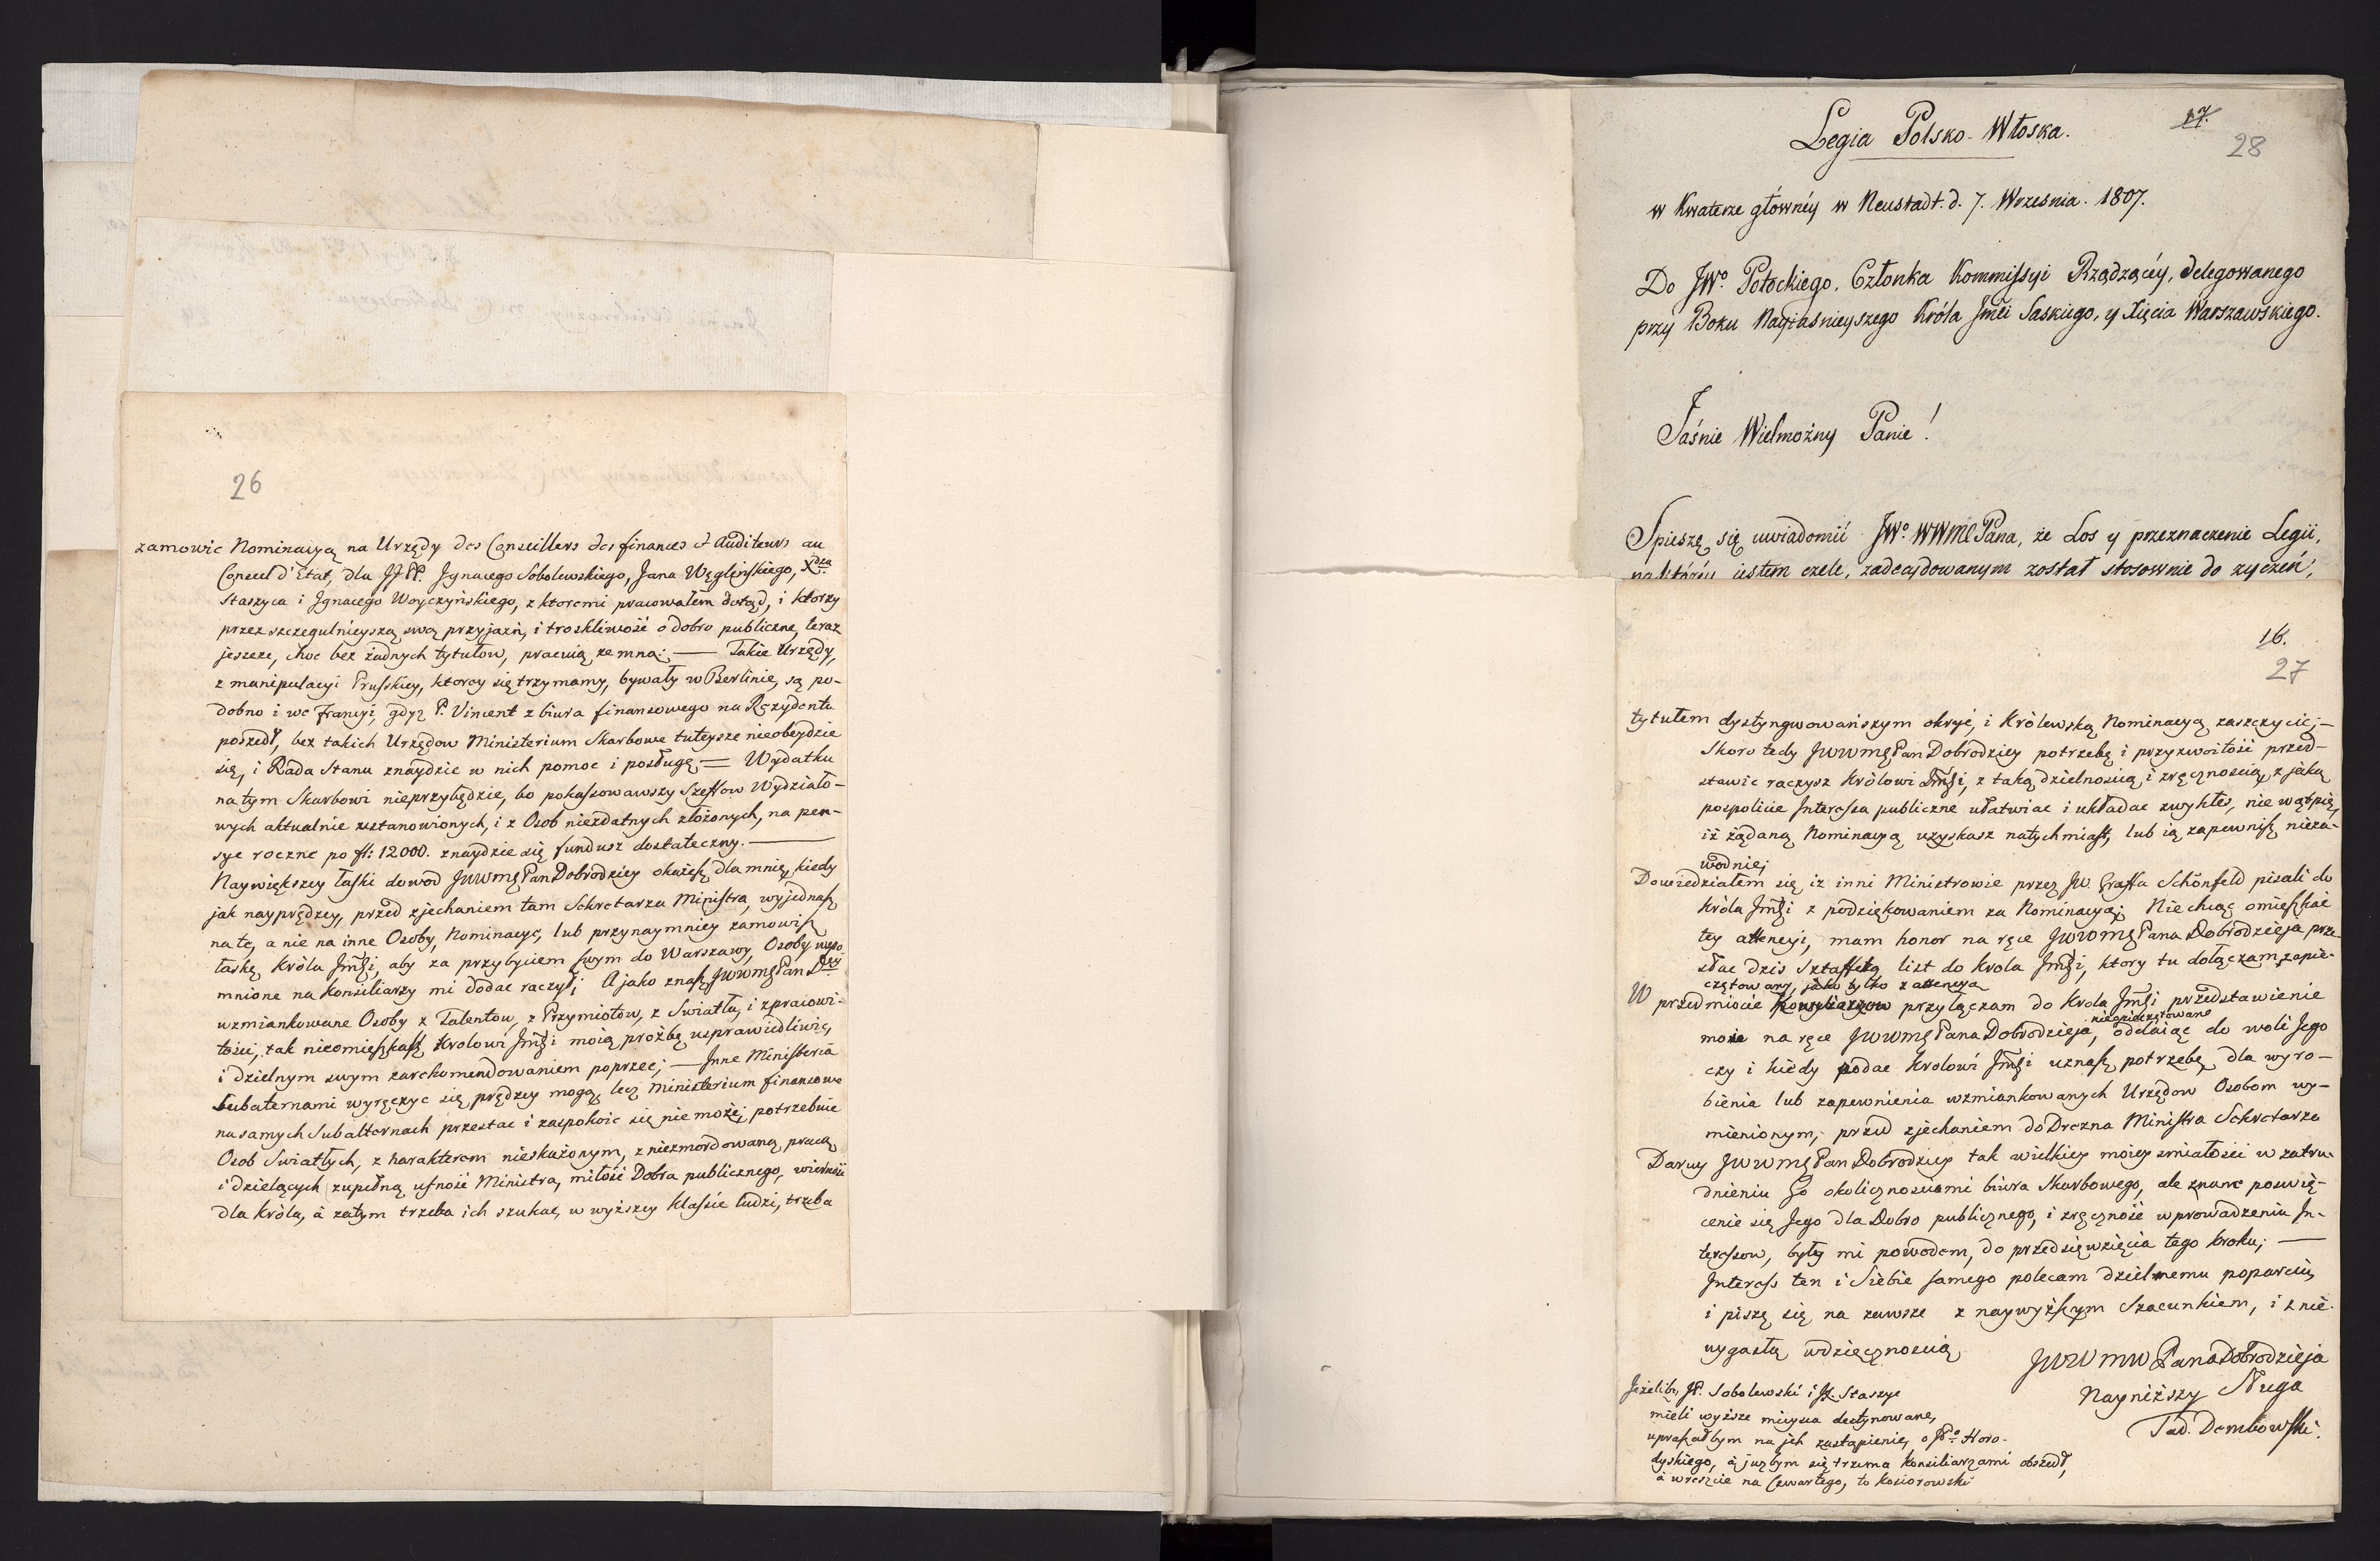 26
zamowic Nominacyą na Urzędy des Conseillers des finances et Auditeurs au
Conseil d'Etat, dla JJPP. Ignacego Sobolewskiego, Jana Węglińskiego, Xdza
Staszyca i Ignacego Woyczyńskiego, z ktoremi pracowałem dotąd, i ktorzy
przez szczegulnieyszą swą przyjazń, i troskliwość o dobro publiczne, teraz
jeszcze, choc bez żadnych tytułow, pracuią ze mną; — Takie Urzędy,
z manipulacyi Pruskiey, ktorey się trzymamy, bywały w Berlinie, są po-
dobno i we Francyi, gdyż P. Vincent z biura finansowego na Rezydenta
poszedł, bez takich Urzędow Ministerium Skarbowe tuteysze nieobeydzie
się, i Rada Stanu znaydzie w nich pomoc i posługę = Wydatku
na tym Skarbowi nieprzybędzie, bo pokassowawszy Szeffow Wydziało-
wych aktualnie ustanowionych, i z Osob niezdatnych złożonych, na pen-
sye roczne po fl: 12000. znaydzie się fundusz dostateczny. —
Naywiększey łaski dowod JWWMę Pan Dobrodziey okażesz dla mnie, kiedy
jak nayprędzey, przed zjechaniem tam Sekretarza Ministra, wyjednasz
na te, a nie na inne Osoby, Nominacye, lub przynaymniey zamowisz
łaskę Króla Jmśi, aby za przybyciem swym do Warszawy, Osoby wspo
mnione na Konsiliarzy mi dodac raczył; A jako znasz JWWMę Pan Dzy
wzmiankowane Osoby z Talentow, z Przymiotow, z Swiatła, i z pracowi-
tości, tak nieomieszkasz Krolowi Jmśi moią proźbę usprawiedliwić,
i dzielnym swym zarekomendowaniem poprzec; — Inne Ministeria
Subalternami wyręczyc się prędzey mogą, lecz Ministerium finansowe
na samych Subalternach przestac i zaspokoic się nie może; potrzebuie
Osob Swiatłych, z harakterem nieskażonym, z niezmordowaną pracą
i dzielących zupełną ufność Ministra, miłość Dobra publicznego, wierność
dla Króla, á zatym trzeba ich szukac, w wyższey klassie ludzi, trzeba
Legia Polsko-Włoska.
17.
28
w Kwaterze główney w Neustadt. d. 7. Wrzesnia. 1807.
Do JWo. Potockiego, Członka Kommissyi Rządzącéy, delegowanego
przy Boku Nayiaśnieyszego Króla Jmci Saskiego, y Xięcia Warszawskiego.
Jaśnie Wielmożny Panie!
Spieszę się uwiadomić JWo. WWMC Pana, że Los y przeznaczenie Legii,
na którey iestem czele, zadecydowanym został stosownie do zyczeń,
16.
27
tytułem dystyngwowańszym okryć, i Królewską Nominacyą zaszczycić; —
Skoro tedy JWWMę Pan Dobrodziey potrzebę i przyzwoitość przed-
stawic raczysz Królowi Jmśi, z taką dzielnoscią i zręcznoscią, z jaką
pospolicie Interessa publiczne ułatwiac i układac zwykłeś, nie wątpię
iż żądaną Nominacyą uzyskasz natychmiast, lub ią zapewnisz nieza-
wodnie;
Dowiedziałem się iż inni Ministrowie przez JW. Graffa Schönfeld pisali do
Króla Jmśi z podziękowaniem za Nominacyą; Nie chcąc omieszkać
tey attencyi, mam honor na ręce JWWMę Pana Dobrodzieja prze-
słac dzis Sztaffetą list do Krola Jmśi, ktory tu dołączam, zapie-
czętowany, jako tylko z attencyą
W przedmiocie Konsyliarzow przyłączam do Krola Jmśi przedstawienie
niezapieczętowane
moie na ręce JWWMę Pana Dobrodzieja, oddaiąc do woli Jego
czy i kiedy podac Krolowi Jmśi uznasz potrzebę, dla wyro-
bienia lub zapewnienia wzmiankowanych Urzędow Osobom wy-
mienionym, przed zjechaniem do Drezna Ministra Sekretarza
Daruy JWWMę Pan Dobrodziey tak wielkiey moiey smiałości w zatru-
dnieniu Go okolicznosciami biura Skarbowego, ale znane poswię-
cenie się Jego dla Dobro publicznego, i zręczność w prowadzeniu In-
teressow, były mi powodem, do przedsięwzięcia tego kroku; —
Interess ten i Siebie samego polecam dzielnemu poparciu,
i piszę się na zawsze z naywyższym Szacunkiem, i z nie-
wygasłą wdzięcznoscią
JWW MW Pana Dobrodzieja
Nayniższy Sługa
Tad. Dembowski.
Jeżeliby JP. Sobolewski i JX. Staszyc
mieli wyższe mieysca destynowane,
upraszałbym na jch zastąpienie, o JPo Horo-
dyskiego, á jużbym się trzema Konsiliarzami obszedł,
á wreszcie na Czwartego, to Kosiorowski